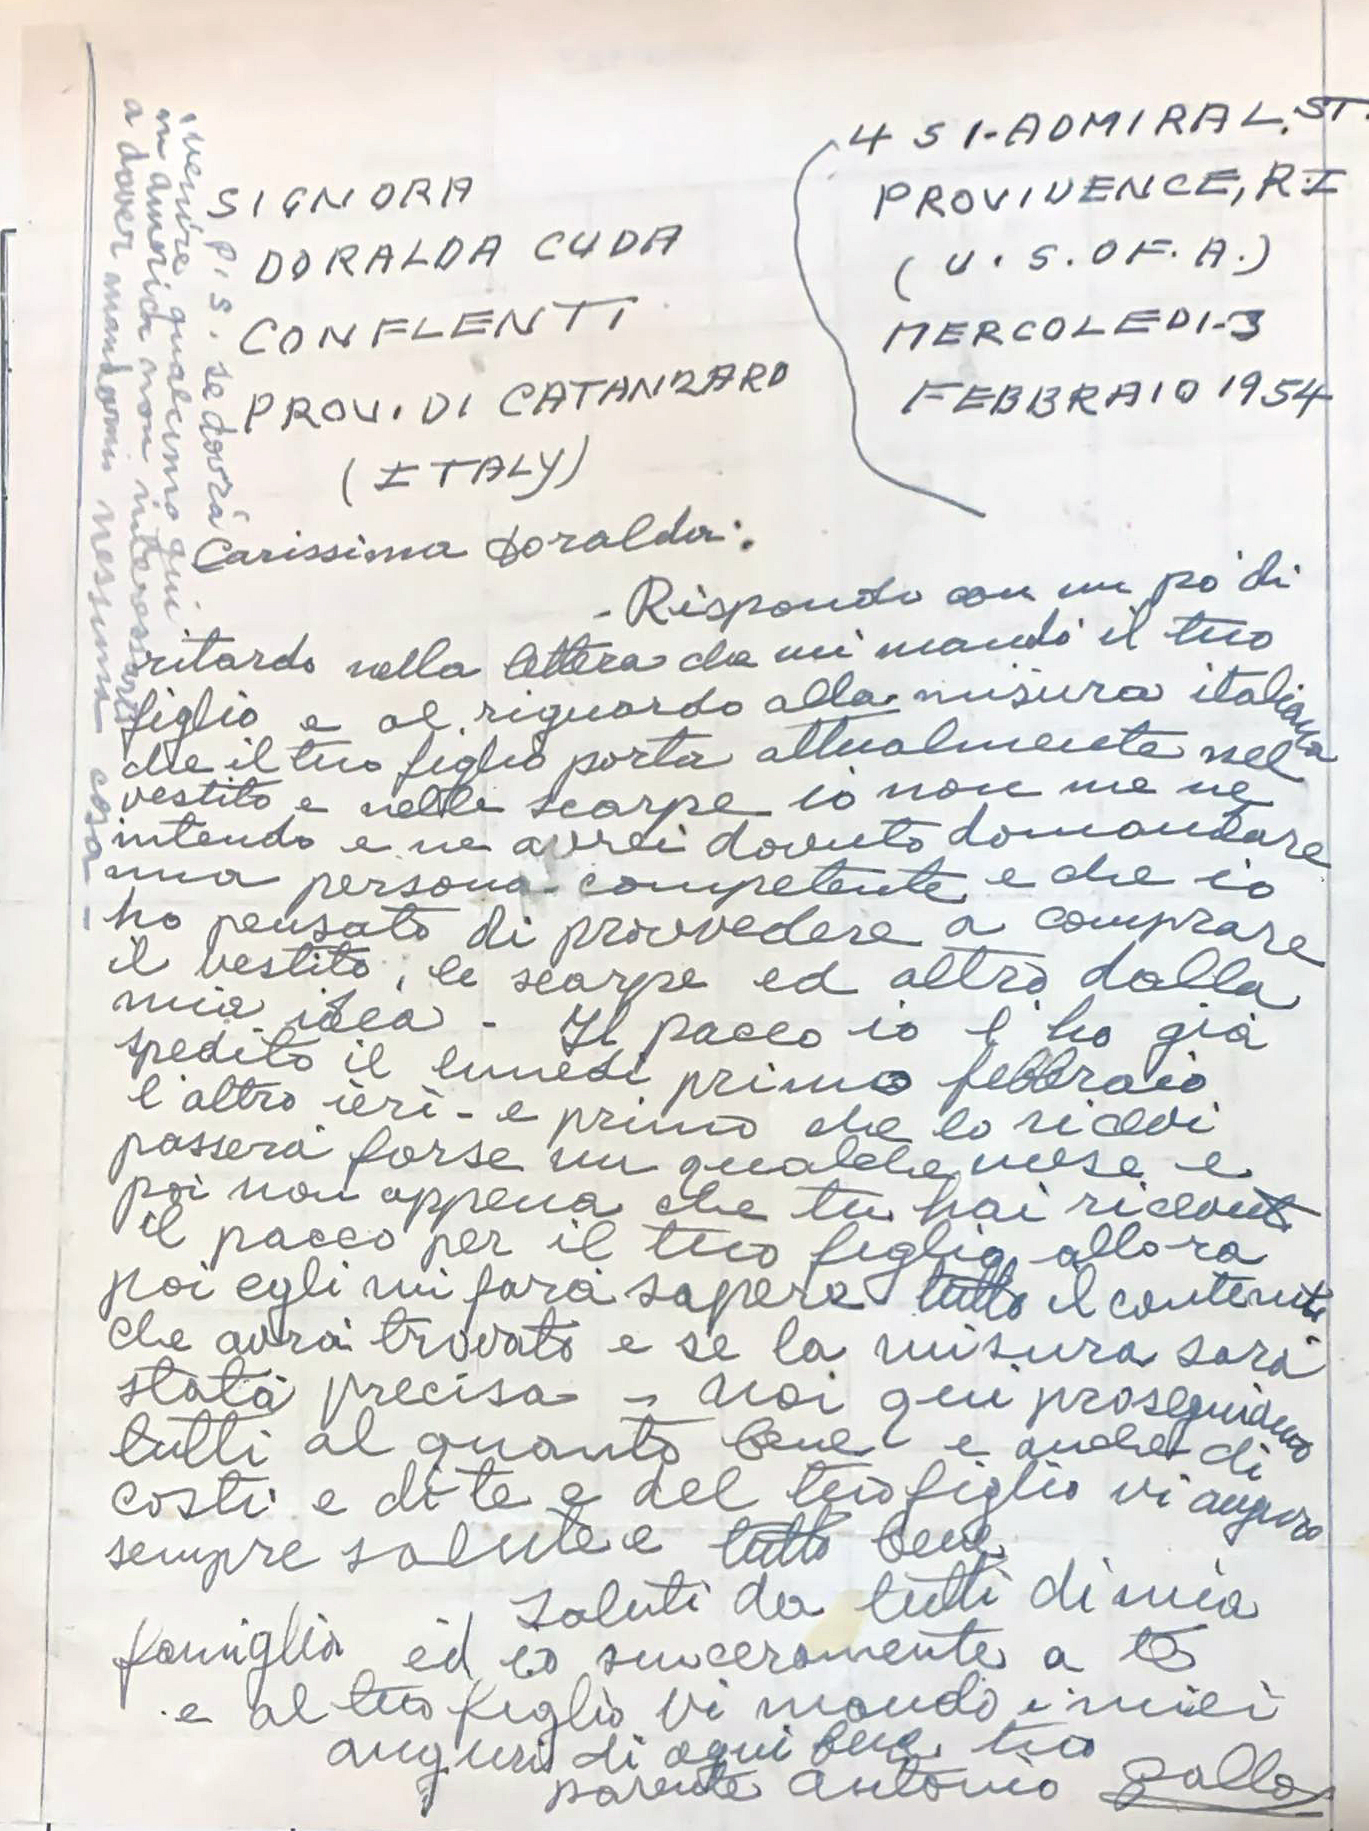 451-ADMIRAL. ST.
PROVIDENCE, R.I
(U.S. OF. A.)
MERCOLEDI-3
FEBBRAIO 1954
SIGNORA
DORALDA CUDA
CONFLENTI
PROV. DI CATANZARO
(ITALY)
Carissima Doralda:
- Rispondo con un pò di
ritardo nella lettera che mi mandò il tuo
figlio e al riguardo alla misura italiana
che il tuo figlio porta attualmente nel
vestito e nelle scarpe io non me ne
intendo e ne avrei dovuto domandare
una persona competente e che io
ho pensato di provvedere a comprare
il vestito, le scarpe ed altro dalla
mia idea - Il pacco io l'ho già
spedito il lunedì primo febbraio
l'altro ieri - e primo che lo ricevi
passerà forse un qualche mese e
poi non appena che tu hai ricevuto
il pacco per il tuo figlio allora
poi egli mi farà sapere tutto il contenuto
che avrà trovato e se la misura sarà
stata precisa - Noi qui proseguiamo
tutti al quanto bene e anche di
costì e di te e del tuo figlio vi auguro
sempre salute e tutto bene
Saluti da tutti di mia
famiglia ed io sinceramente a te
e al tuo figlio vi mando i miei
auguri di ogni bene tuo
parente Antonio Gallo
P.S. se dovrà
venire qualcuno qui
in america non interessarti
a dover mandarmi nessuna cosa -